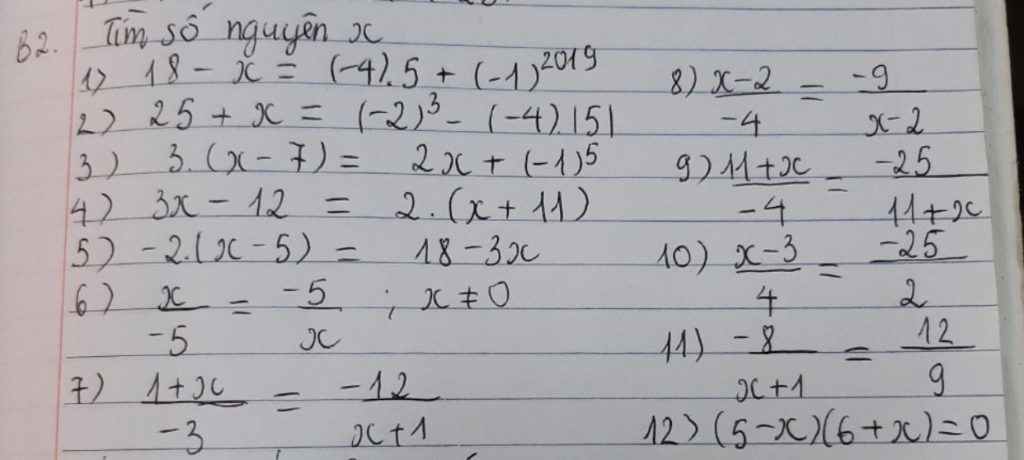 B2. Tìm số nguyên x
1) 18 - x = (-4).5 + (-1)^2019
2) 25 + x = (-2)^3 - (-4).|5|
3) 3.(x - 7) = 2x + (-1)^5
4) 3x - 12 = 2.(x + 11)
5) -2.(x - 5) = 18 - 3x
6) x/-5 = -5/x ; x ≠ 0
7) 1+x/-3 = -12/x+1
8) x-2/-4 = -9/x-2
9) 11+x/-4 = -25/11+x
10) x-3/4 = -25/2
11) -8/x+1 = 12/9
12) (5-x)(6+x)=0